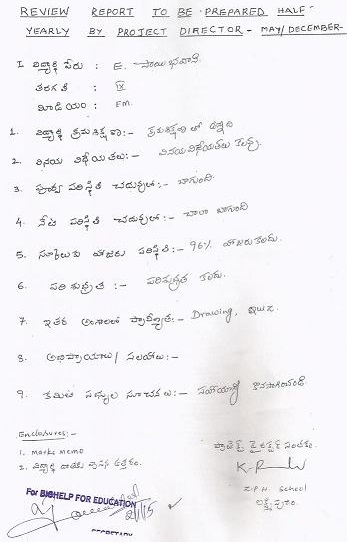 REVIEW REPORT TO BE PREPARED HALF-
YEARLY BY PROJECT DIRECTOR - MAY/DECEMBER-
I. విద్యార్థి పేరు : E. సాయి భవాని
తరగతి : IX
మీడియం : EM.
1. విద్యార్థి క్రమశిక్షణ :- క్రమశిక్షణ లో ఉన్నది
2. వినయ విధేయతలు:- వినయవిధేయతలు కలవు.
3. పూర్వ పరిస్థితి చదువులో :- బాగుంది
4. నేటి పరిస్థితి చదువులో :- చాలా బాగుంది
5. స్కూలుకు హాజరు పరిస్థితి :- 96% హాజరు కలదు.
6. పరిశుభ్రత :- పరిశుభ్రత కలదు.
7. ఇతర అంశాలలో ప్రావీణ్యత :- Drawing, Quiz.
8. అభిప్రాయాలు / సలహాలు :-
9. కమిటి సభ్యుల సూచనలు :- సహాయాన్ని కొనసాగించండి
Enclosures:-
1. Marks memo
2. విద్యార్థి రాయు ఉత్తరం.
ప్రాజెక్టు డైరెక్టర్ సంతకం.
Z.P.H. School
లక్ష్మీపురం.
For BIGHELP FOR EDUCATION
2/1/15
SECRETARY